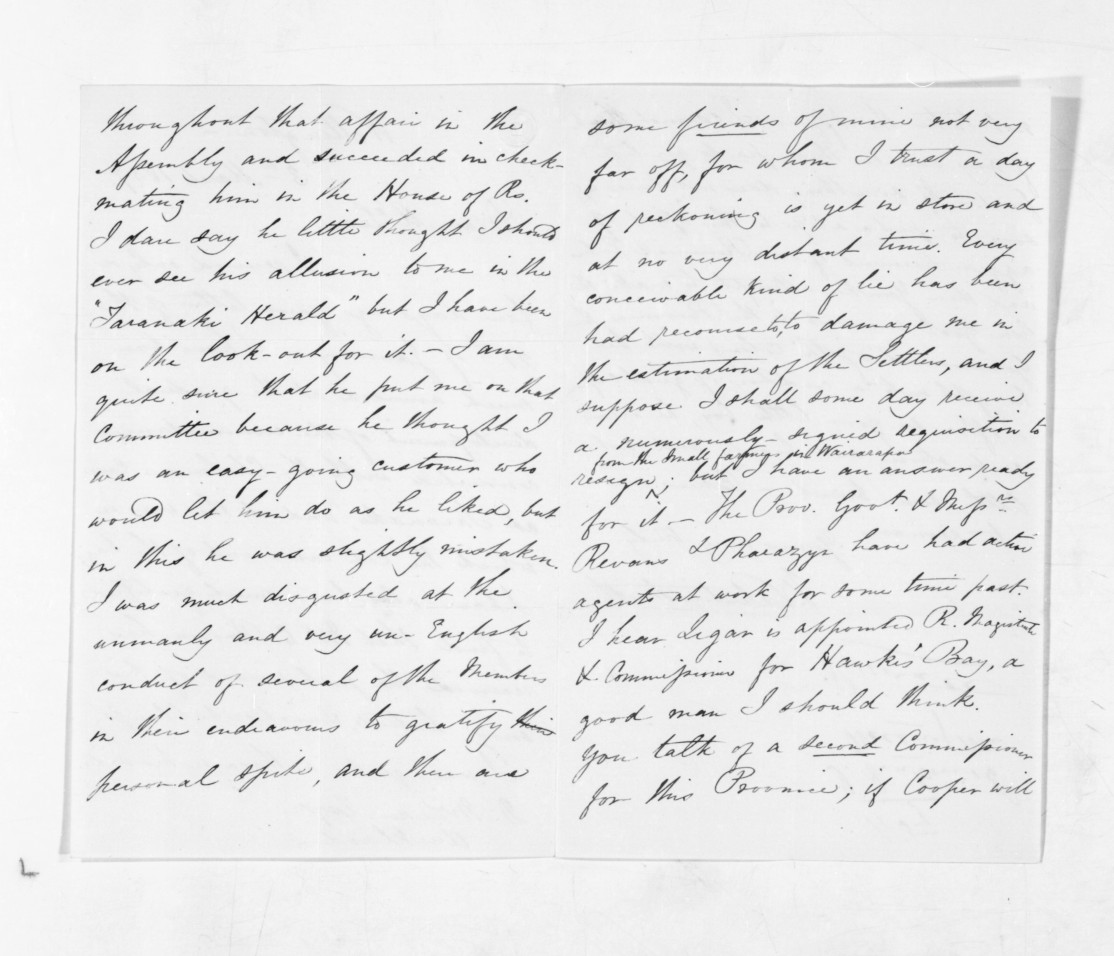 throughout that affair in the
Assembly and succeeded in check-
mating him in the House of Rs.
I dare say he little thought I should
ever see his allusion to me in the
"Taranaki Herald" but I have been
on the look-out for it. – I am
quite sure that he put me on that
Committee because he thought I
was an easy-going customer who
would let him do as he liked, but
in this he was slightly mistaken.
I was much disgusted at the
unmanly and very un-English
conduct of several of the Members
in their endeavours to gratify their
personal spite, and there are
some friends of mine not very
far off, for whom I trust a day
of reckoning is yet in store and
at no very distant time. Every
conceivable kind of lie has been
had recourse to, to damage me in
the estimation of the Settlers, and I
suppose I shall some day receive
a numerously-signed requisition to
from the Small farmings in Wairarapa
resign; but I have an answer ready
for it – The Prov. Govt. & Messrs
Revans & Pharazyn have had active
agents at work for some time past.
I hear Ligar is appointed R. Magistrate
& Commissioner for Hawke's Bay, a
good man I should think.
You talk of a second Commissioner
for this Province; if Cooper will